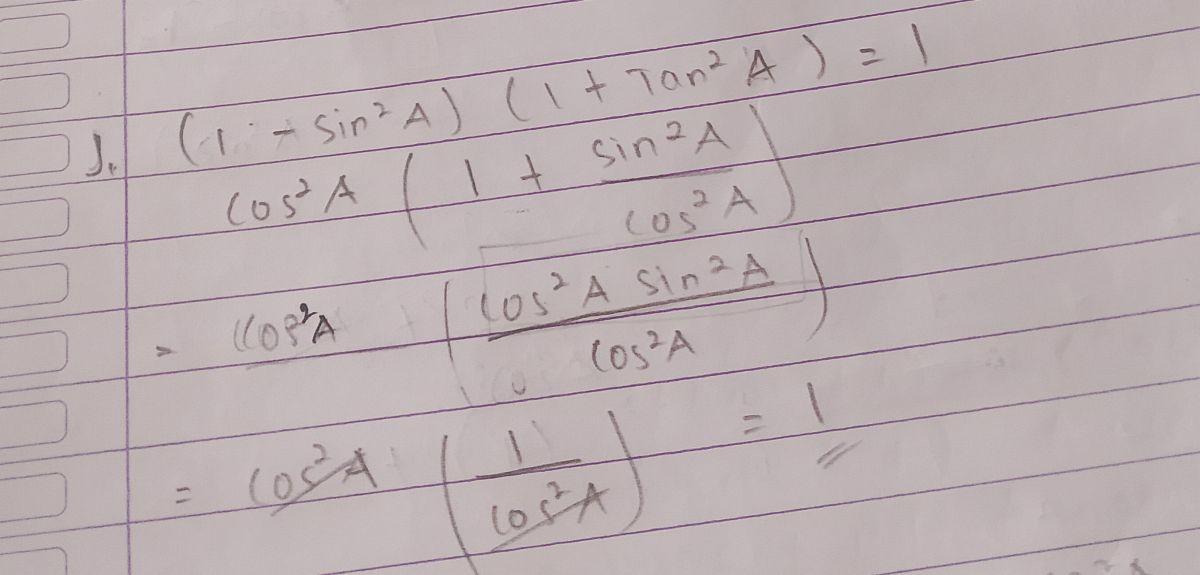 1. (1 - sin² A) (1 + Tan² A) = 1
cos² A (1 + sin² A / cos² A)
= cos² A (cos² A sin² A / cos² A)
= cos² A (1 / cos² A) = 1